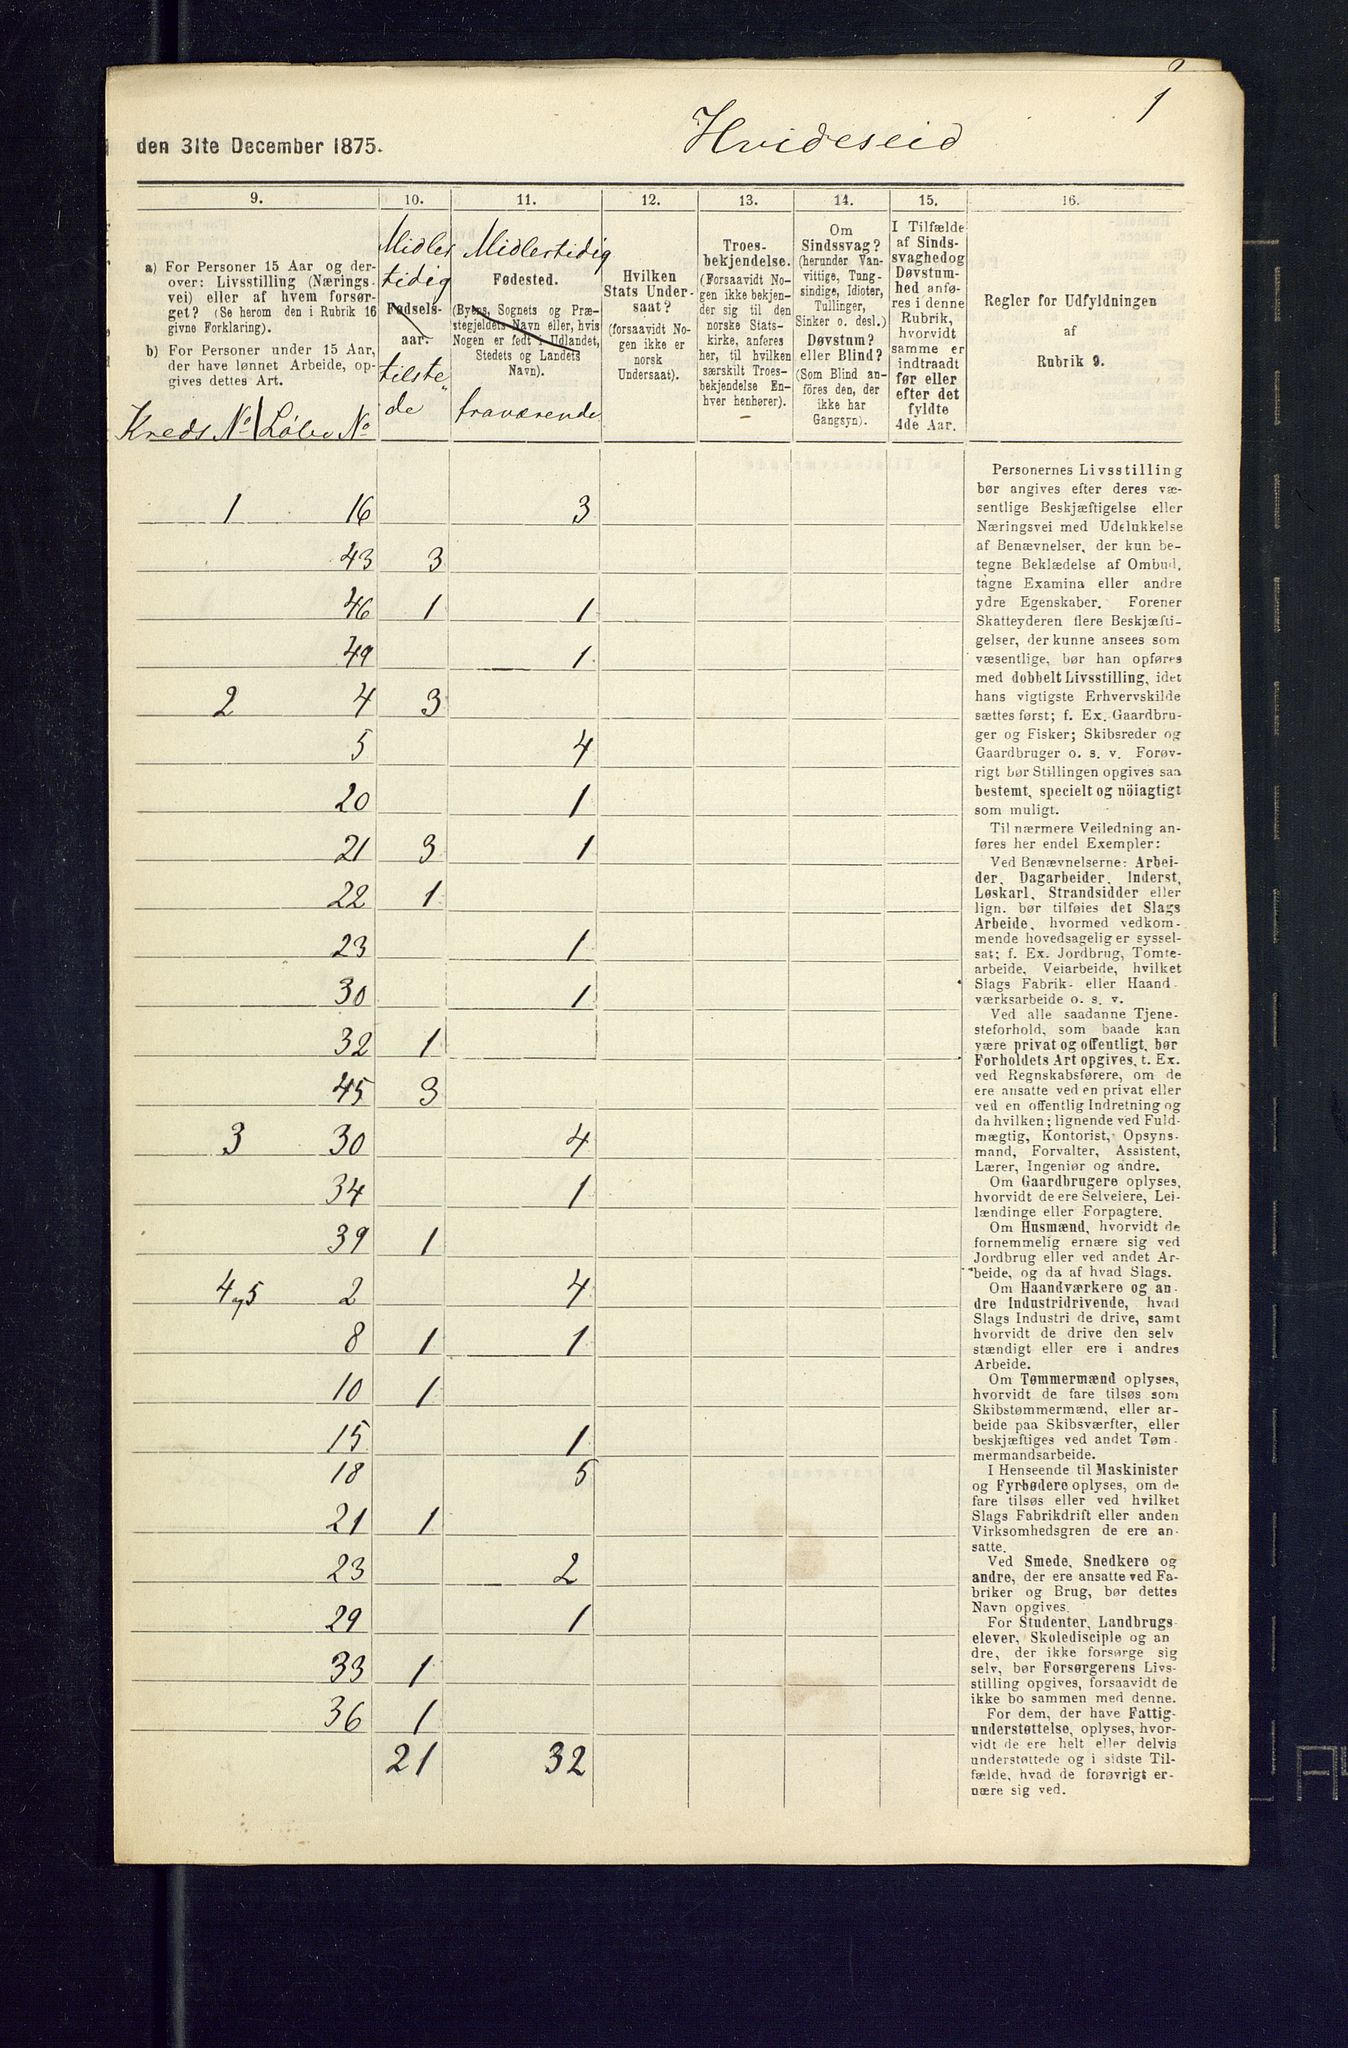 1
den 31te December 1875.
Hvideseid
9. 10. 11. 12. 13. 14. 15. 16.
a) For Personer 15 Aar og der-
over: Livsstilling (Nærings-
vei) eller af hvem forsør-
get? (Se herom den i Rubrik 16
givne Forklaring).
b) For Personer under 15 Aar,
der have lønnet Arbeide, op-
gives dettes Art.
Kreds No Löbe No
Midler
tidig
Fødsels-
aar.
tilste„
de
Midlertidig
Fødested.
(Byens, Sognets og Præ-
stegjeldets Navn eller, hvis
Nogen er født i Udlandet,
Stedets og Landets
Navn).
fraværende
Hvilken
Stats Under-
saat?
(forsaavidt No-
gen ikke er
norsk
Undersaat).
Troes-
bekjendelse.
(Forsaavidt No-
gen ikke bekjen-
der sig til den
norske Stats-
kirke, anføres
her, til hvilken
særskilt Troes-
bekjendelse En-
hver henhører).
Om
Sindssvag?
(herunder Van-
vittige, Tung-
sindige, Idioter,
Tullinger,
Sinker o. desl.)
Døvstum?
eller Blind?
(Som Blind an-
føres den, der
ikke har
Gangsyn).
I Tilfælde
af Sinds-
svaghed og
Døvstum-
hed anfø-
res i denne
Rubrik,
hvorvidt
samme er
indtraadt
før eller
efter det
fyldte
4de Aar.
Regler for Udfyldningen
af
Rubrik 9.
1 16 3
43 3
46 1 1
49 1
2 4 3
5 4
20 1
21 3 1
22 1
23 1
30 1
32 1
45 3
3 30 4
34 1
39 1
4 og 5 2 4
8 1 1
10 1
15 1
18 5
21 1
23 2
29 1
33 1
36 1
21 32
Personernes Livsstilling
bør angives efter deres væ-
sentlige Beskjæftigelse eller
Næringsvei med Udelukkelse
af Benævnelser, der kun be-
tegne Beklædelse af Ombud,
tagne Examina eller andre
ydre Egenskaber. Forener
Skatteyderen flere Beskjæfti-
gelser, der kunne ansees som
væsentlige, bør han opføres
med dobbelt Livsstilling, idet
hans vigtigste Erhvervskilde
sættes først; f. Ex. Gaardbru-
ger og Fisker; Skibsreder og
Gaardbruger o. s. v. Forøv-
rigt bør Stillingen opgives saa
bestemt, specielt og nöiagtigt
som muligt.
Til nærmere Veiledning an-
føres her endel Exempler:
Ved Benævnelserne: Arbei-
der, Dagarbeider, Inderst,
Løskarl, Strandsidder eller
lign. bør tilføies det Slags
Arbeide, hvormed vedkom-
mende hovedsagelig er syssel-
sat; f. Ex. Jordbrug, Tomte-
arbeide, Veiarbeide, hvilket
Slags Fabrik- eller Haand-
værksarbeide o. s. v.
Ved alle saadanne Tjene-
steforhold, som baade kan
være privat og offentligt, bør
Forholdets Art opgives, t. Ex.
ved Regnskabsførere, om de
ere ansatte ved en privat eller
ved en offentlig Indretning og
da hvilken; lignende ved Fuld-
mægtig, Kontorist, Opsyns-
mand, Forvalter, Assistent,
Lærer, Ingeniør og andre.
Om Gaardbrugere oplyses,
hvorvidt de ere Selveiere, Lei-
lændinge eller Forpagtere.
Om Husmænd, hvorvidt de
fornemmelig ernære sig ved
Jordbrug eller ved andet Ar-
beide, og da af hvad Slags.
Om Haandværkere og an-
dre Industridrivende, hvad
Slags Industri de drive, samt
hvorvidt de drive den selv
stændigt eller ere i andres
Arbeide.
Om Tømmermænd oplyses,
hvorvidt de fare tilsøs som
Skibstømmermænd, eller ar-
beide paa Skibsværfter, eller
beskjæftiges ved andet Tøm-
mermandsarbeide.
I Henseende til Maskinister
og Fyrbødere oplyses, om de
fare tilsøs eller ved hvilket
Slags Fabrikdrift eller anden
Virksomhedsgren de ere an-
satte.
Ved Smede, Snedkere og
andre, der ere ansatte ved Fa-
briker og Brug, bør dettes
Navn opgives.
For Studenter, Landbrugs-
elever, Skoledisciple og an
dre, der ikke forsørge sig
selv, bør Forsørgerens Livs-
stilling opgives, forsaavidt de
ikke bo sammen med denne.
For dem, der have Fattig-
understøttelse, oplyses, hvor-
vidt de ere helt eller delvis
understøttede og i sidste Til-
fælde, hvad de forøvrigt er-
nære sig ved.